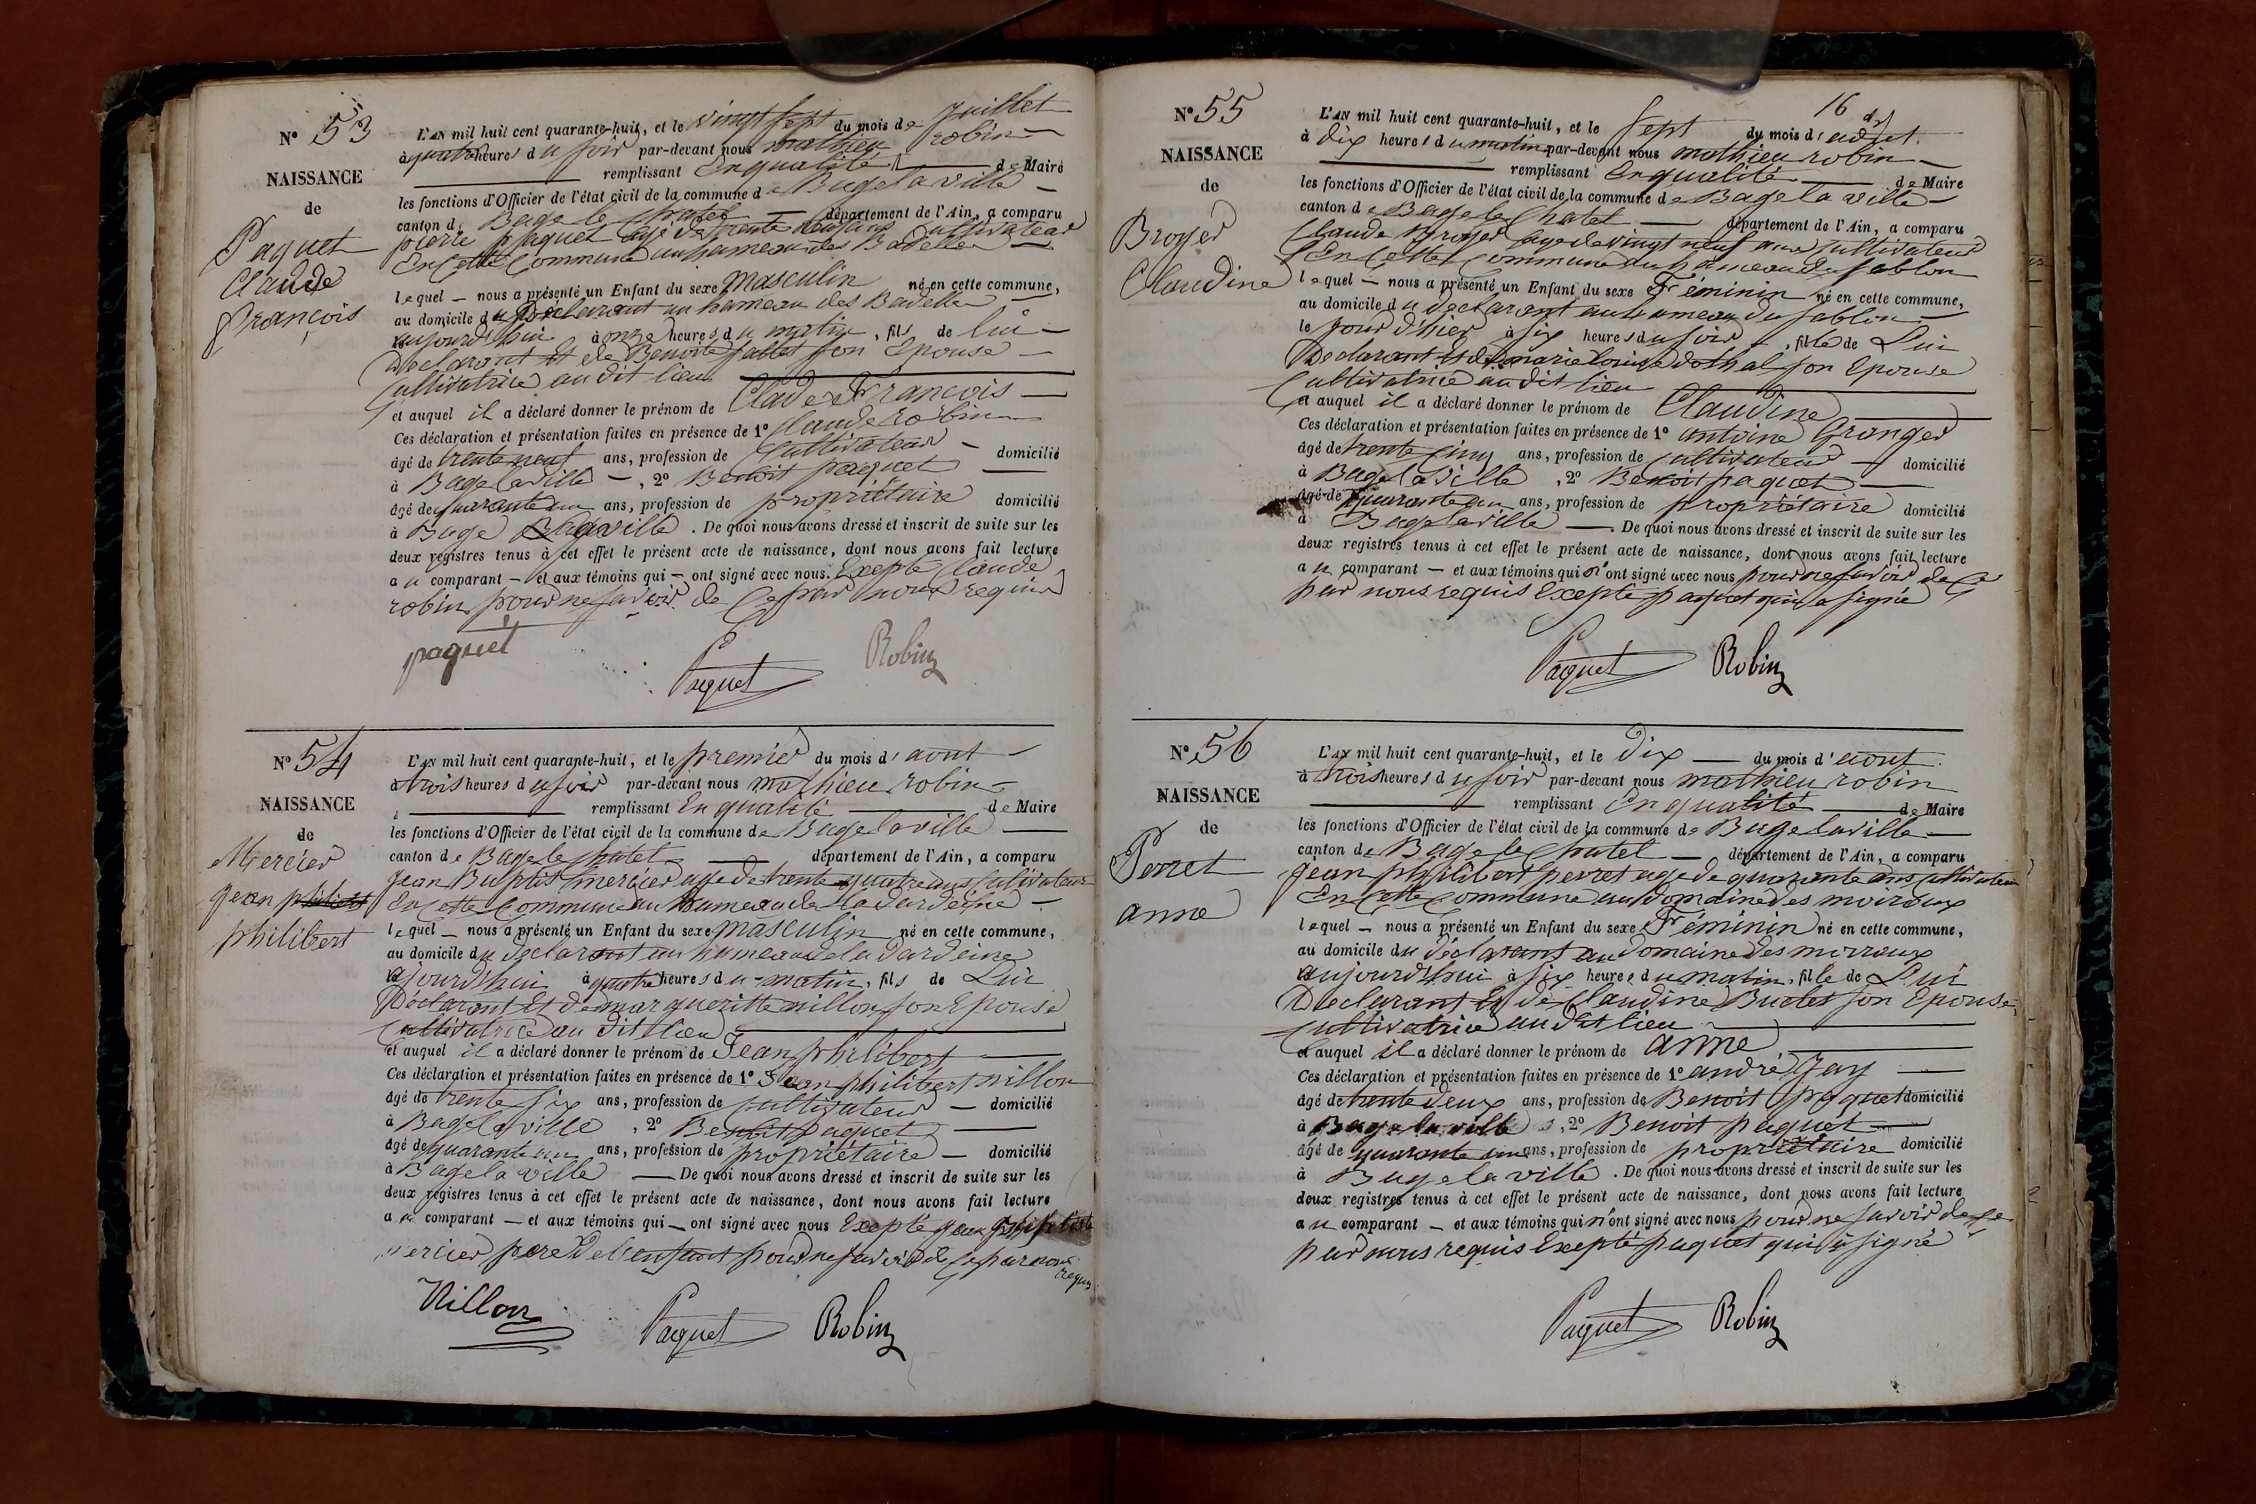 N° 53
NAISSANCE
de
Paquet
Claude
françois
L'AN mil huit cent quarante-huit, et le vingt sept du mois de juillet
à quatre heures du soir par-devant nous mathieu robin
remplissant En qualité de Maire
les fonctions d'Officier de l'état civil de la commune de Bage la ville
canton de Bage le Chatel département de l'Ain, a comparu
pierre paquet agé de trente deux ans cultivateur
En Cette Commune au hameau des
lequel nous a présenté un Enfant du sexe masculin né en cette commune,
au domicile du Déclarant au hameau des
aujourd'hui à onze heures du matin, fils de lui
Declarant Et de Benoite son Epouse
Cultivatrice au dit lieu
et auquel il a déclaré donner le prénom de Clade François
Ces déclaration et présentation faites en présence de 1° Claude robin
âgé de trente neuf ans, profession de Cultivateur domicilié
à Bage la ville, 2° Benoit paquet
âgé de quarante un ans, profession de propriétaire domicilié
à Bage la ville. De quoi nous avons dressé et inscrit de suite sur les
deux registres tenus à cet effet le présent acte de naissance, dont nous avons fait lecture
au comparant et aux témoins qui ont signé avec nous. Exepté Claude
robin pour ne savoir de Ce par nous requis
paquet
Paquet Robin
N° 54
NAISSANCE
de
Mercier
jean philibert
philibert
L'AN mil huit cent quarante-huit, et le premier du mois d'aout
à trois heures du soir par-devant nous mathieu robin
remplissant En qualité de Maire
les fonctions d'Officier de l'état civil de la commune de Bage la ville
canton de Bage le Chatel département de l'Ain, a comparu
jean Baptist mercier age de trente quatre ans Cultivateur
En Cette Commune au hameau de la dardeine
lequel nous a présenté un Enfant du sexe masculin né en cette commune,
au domicile du declarant au hameau de la dardeine
ajourd'hui à quatre heures du matin, fils de Lui
Déclarant Et de margueritte nillon son Epouse
Cultivatrice au dit lieu
et auquel il a déclaré donner le prénom de Jean philibert
Ces déclaration et présentation faites en présence de 1° Jean philibert nillon
âgé de trente six ans, profession de Cultivateur domicilié
à Bage la ville, 2° Benoit paquet
âgé de quarante un ans, profession de propriétaire domicilié
à Bage la ville De quoi nous avons dressé et inscrit de suite sur les
deux registres tenus à cet effet le présent acte de naissance, dont nous avons fait lecture
au comparant et aux témoins qui ont signé avec nous Exepté jean
mercier pere de l'enfant pour ne savoir de Ce par nous
requis
Nillon Paquet Robin
16
N° 55
NAISSANCE
de
Broyer
Claudine
L'AN mil huit cent quarante-huit, et le sept du mois d'aout
à dix heures du matin par-devant nous mathieu robin
remplissant En qualité de Maire
les fonctions d'Officier de l'état civil de la commune de Bage la ville
canton de Bage le Chatel département de l'Ain, a comparu
Claude Broyer age de vingt neuf ans Cultivateur
En Cette Commune au hameau du sablon
lequel nous a présenté un Enfant du sexe Féminin né en cette commune,
au domicile du declarant au hameau du sablon
le jour d'hier à six heures du soir, fille de Lui
Declarant Et de marie louise dothal son Epouse
Cultivatrice au dit lieu
et auquel il a déclaré donner le prénom de Claudine
Ces déclaration et présentation faites en présence de 1° antoine Granger
âgé de trente Cinq ans, profession de Cultivateur domicilié
à Bage la ville, 2° Benoit paquet
âgé de quarante un ans, profession de propriétaire domicilié
à Bage la ville De quoi nous avons dressé et inscrit de suite sur les
deux registres tenus à cet effet le présent acte de naissance, dont nous avons fait lecture
au comparant et aux témoins qui n'ont signé avec nous pour ne savoir de Ce
par nous requis Exepté paquet qui a signé
Paquet Robin
N° 56
NAISSANCE
de
Perret
anne
L'AN mil huit cent quarante-huit, et le dix du mois d'aout
à trois heures du soir par-devant nous mathieu robin
remplissant En qualité de Maire
les fonctions d'Officier de l'état civil de la commune de Bage la ville
canton de Bage le Chatel département de l'Ain, a comparu
jean philibert perret age de quarante ans Cultivateur
En Cette Commune au domaine des moiroux
lequel nous a présenté un Enfant du sexe Féminin né en cette commune,
au domicile du déclarant au domaine des morroux
aujourd'hui à six heures du matin, fille de Lui
Declarant Et de Claudine Buclet son Epouse
Cultivatrice au dit lieu
et auquel il a déclaré donner le prénom de anne
Ces déclaration et présentation faites en présence de 1° andré Jay
âgé de trente deux ans, profession de Benoit paquet domicilié
à Bage la ville, 2° Benoit paquet
âgé de quarante un ans, profession de propriétaire domicilié
à Bage la ville. De quoi nous avons dressé et inscrit de suite sur les
deux registres tenus à cet effet le présent acte de naissance, dont nous avons fait lecture
au comparant et aux témoins qui n'ont signé avec nous pour ne savoir de Ce
par nous requis Exepté paquet qui a signé
Paquet Robin